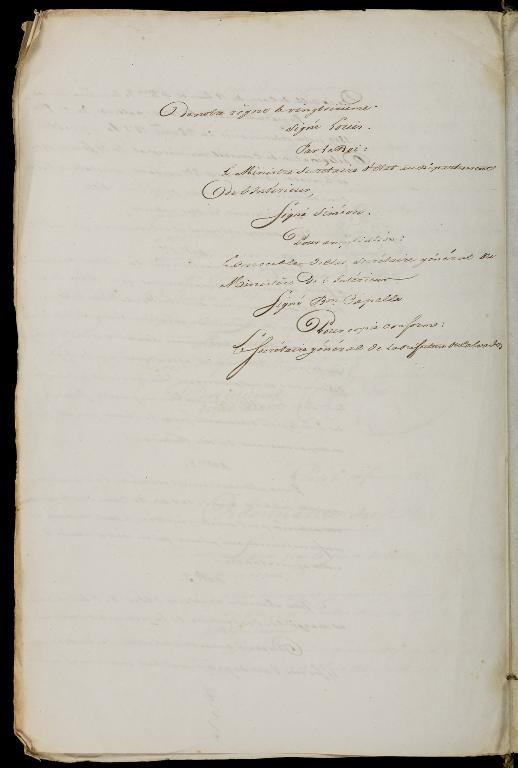 De notre règne le vingtsixième.
Signé Louis.
Par le Roi:
Le Ministre Secrétaire d'Etat au département
De l'Intérieur,
Signé Siméon.
Pour ampliation:
Le Conseiller d'Etat, Secrétaire général du
Ministère De l'Intérieur
Signé Bon Capelle
Pour copie conforme:
Le Secrétaire général de la Préfecture du Calvados,